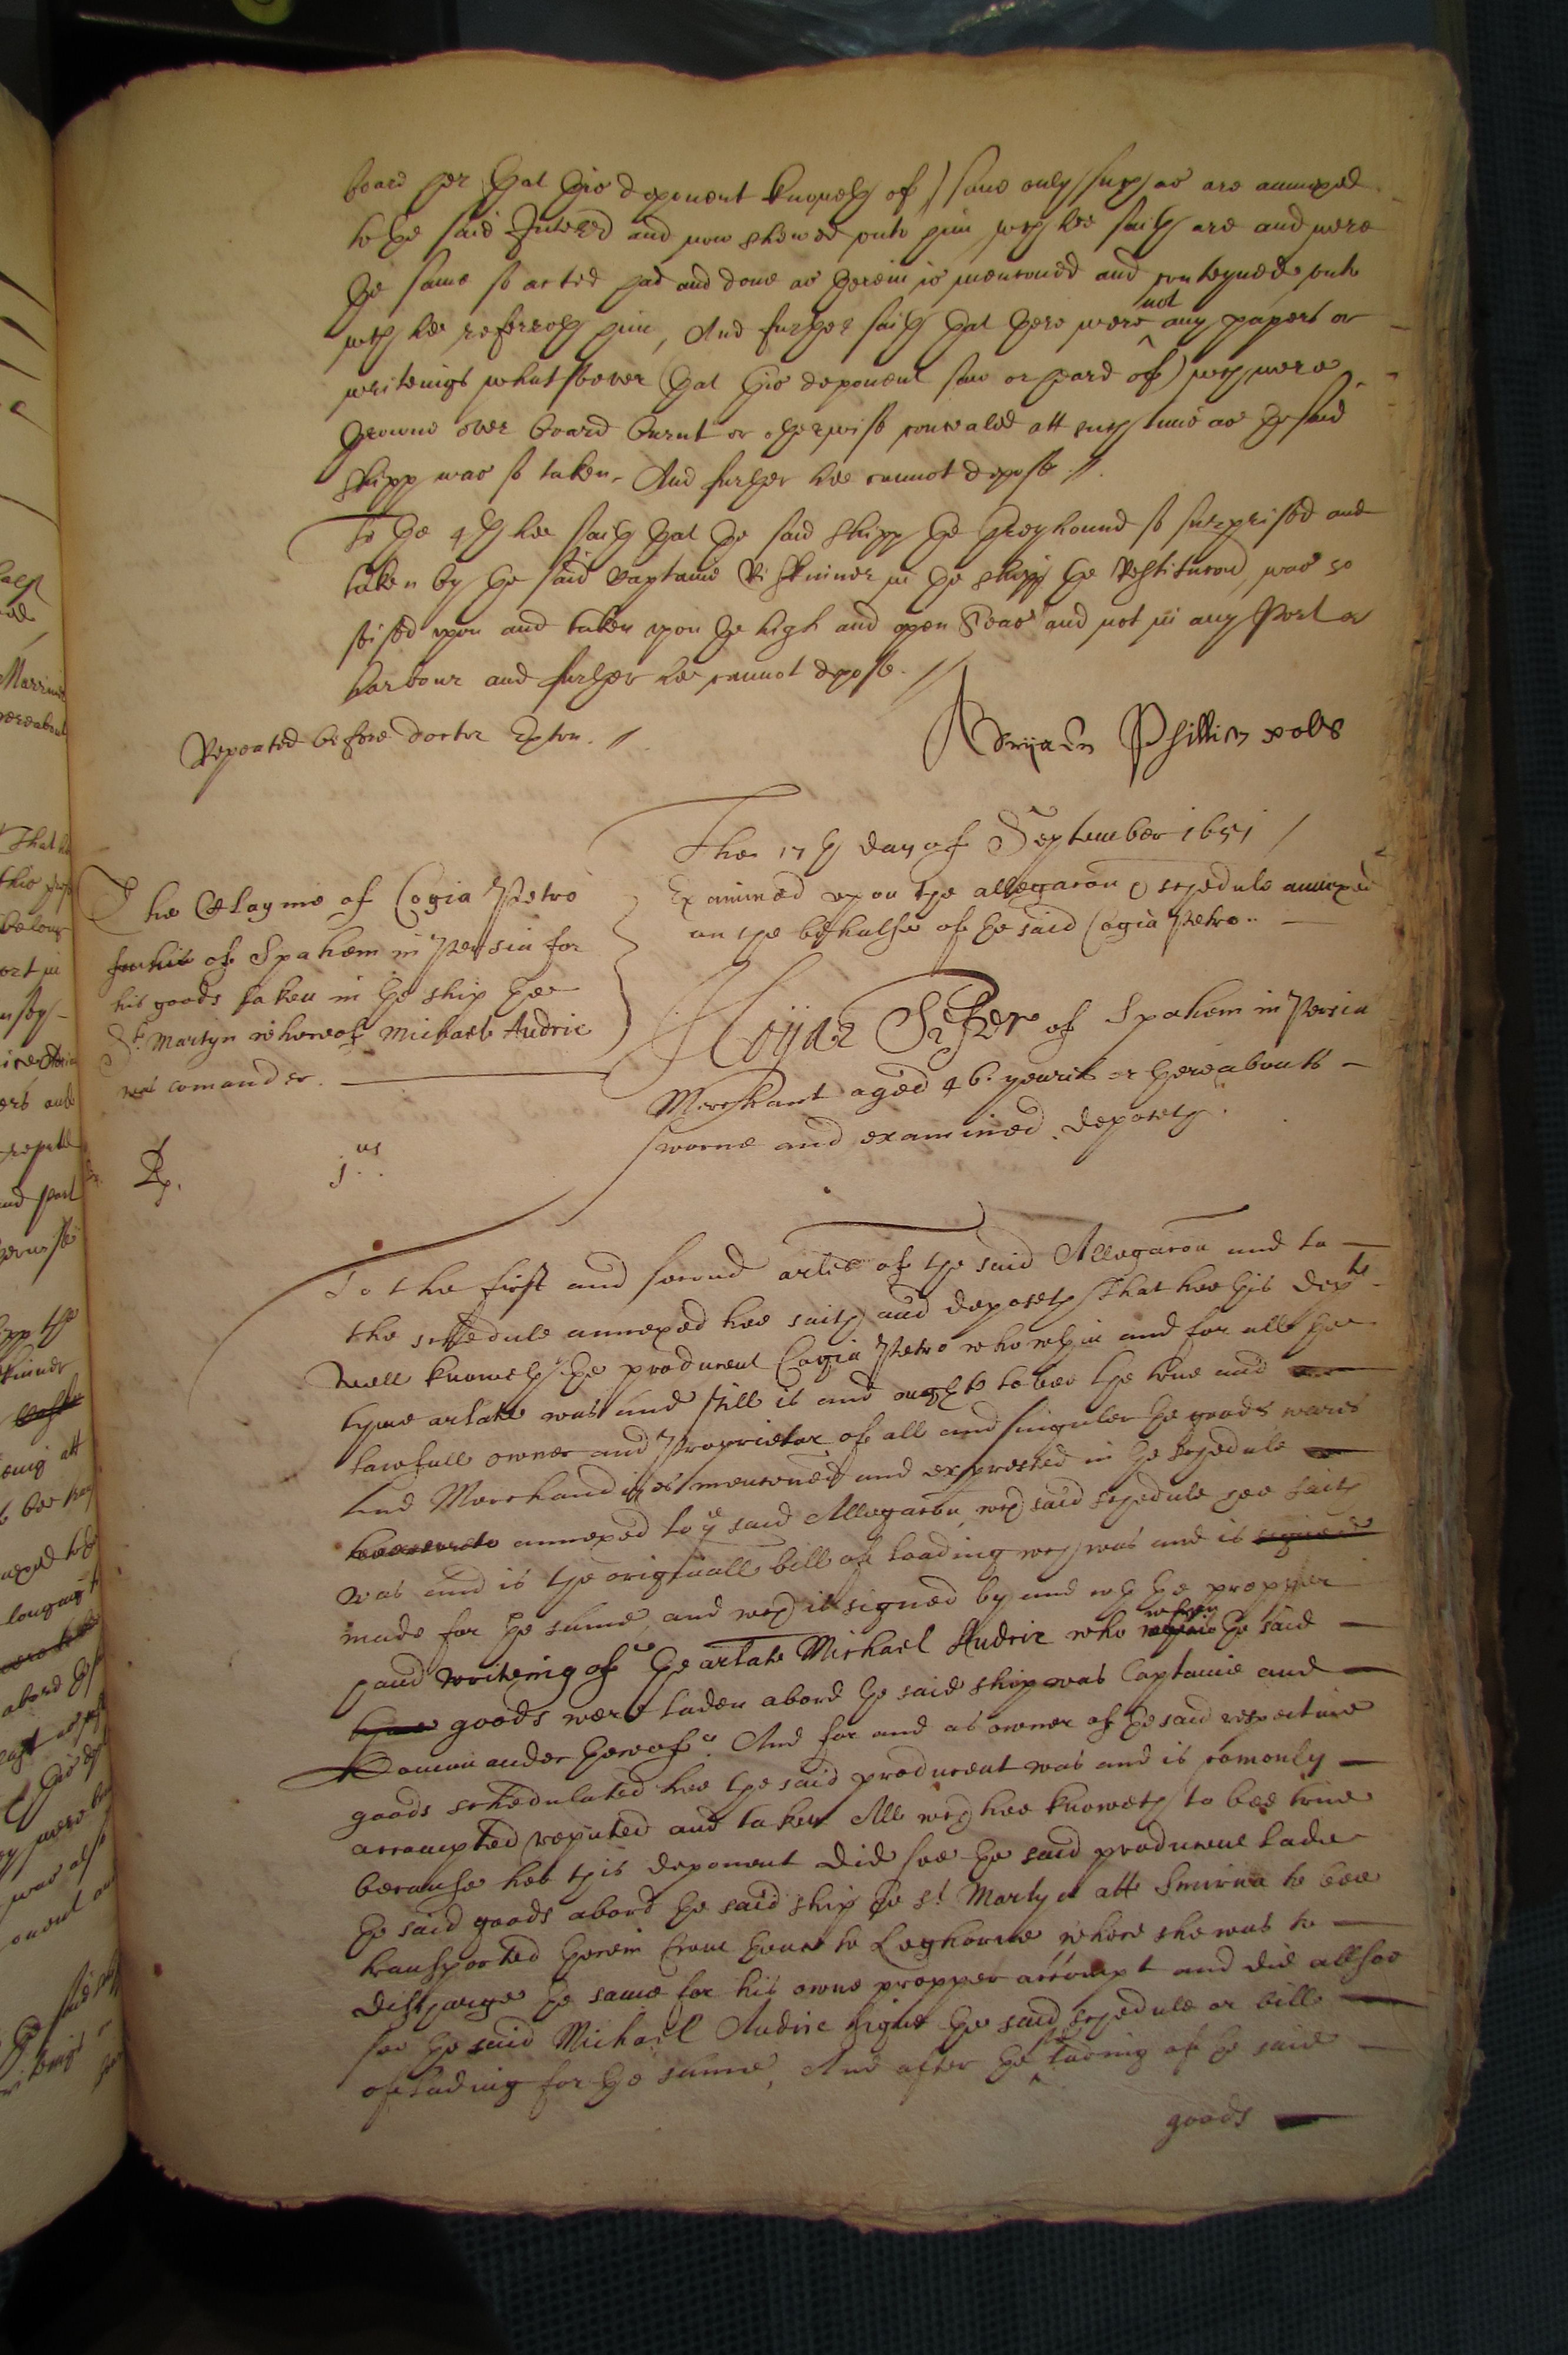 board (for that this deponent knoweth of) save only such as are annexed
to the said Interrd and now shewed unto him, wch hee saith are and were
the same so acted had and done as therein is mentioned and conteyned unto
wch hee referreth him, And further saith that there were not any papers or
writeings whatsoever (that this deponent saw or heard of) wch were
throwne over board burnt or otherwise concealed att such time as the said
shipp was so taken, And further hee cannot depose.//
To the 4th hee saith that the said shipp the Greyhound so surprised and
taken by the said Captaine Skinner in the shipp the Restitucon, was so
seised upon and taken upon the high and open Seas and not in any Port or
harbour and further hee cannot depose.//
Repeated before doctor Exton.//
The 17th day of September 1651/
The Clayme of Cogia Petro
for his of Spahem in Persia for
his goods taken in the ship the
St. Martyn whereof Michael Audric
was comander.
Examined upon the allegacon & schedule annexed
on the behalfe of the said Cogia Petro..
of Spahem in Persia
Merchant aged 46. yeares or thereabouts
sworne and examined. deposeth.
Rp. jus
To the first and second artles of the said Allegacon and to
the schedule annexed hee saith and deposeth That hee this dept
well knoweth the producent Cogia Petro who within and for all the
tyme arlate was and still is and ought to bee the true and
lawfull owner and Proprietor of all and singuler the goods wares
and Merchandizes mentoned and expressed in the schedule
annexed to ye said Allegacon, wch said schedule hee saith
was and is the originall bill of loading wch was and is signed
made for the same, and wch is signed by and wth the propper
hand writeing of the arlate Michael Audric who when the said
tyme goods were laden abord the said ship was Captaine and
Commander thereof. And for and as owner of the said respective
goods schedulated hee the said producent was and is comonly
accompted reputed and taken All wch hee knoweth to bee true
because hee this deponent did see the said producent lade
the said goods abord the said ship the St Martyn att Smirna to bee
transported therein from thence to Leghorne where she was to
discharge the same for his owne propper accompt and did allsoe
see the said Michael Audric signe the said schedule or bill
of lading for the same, And after the lading of the said
goods